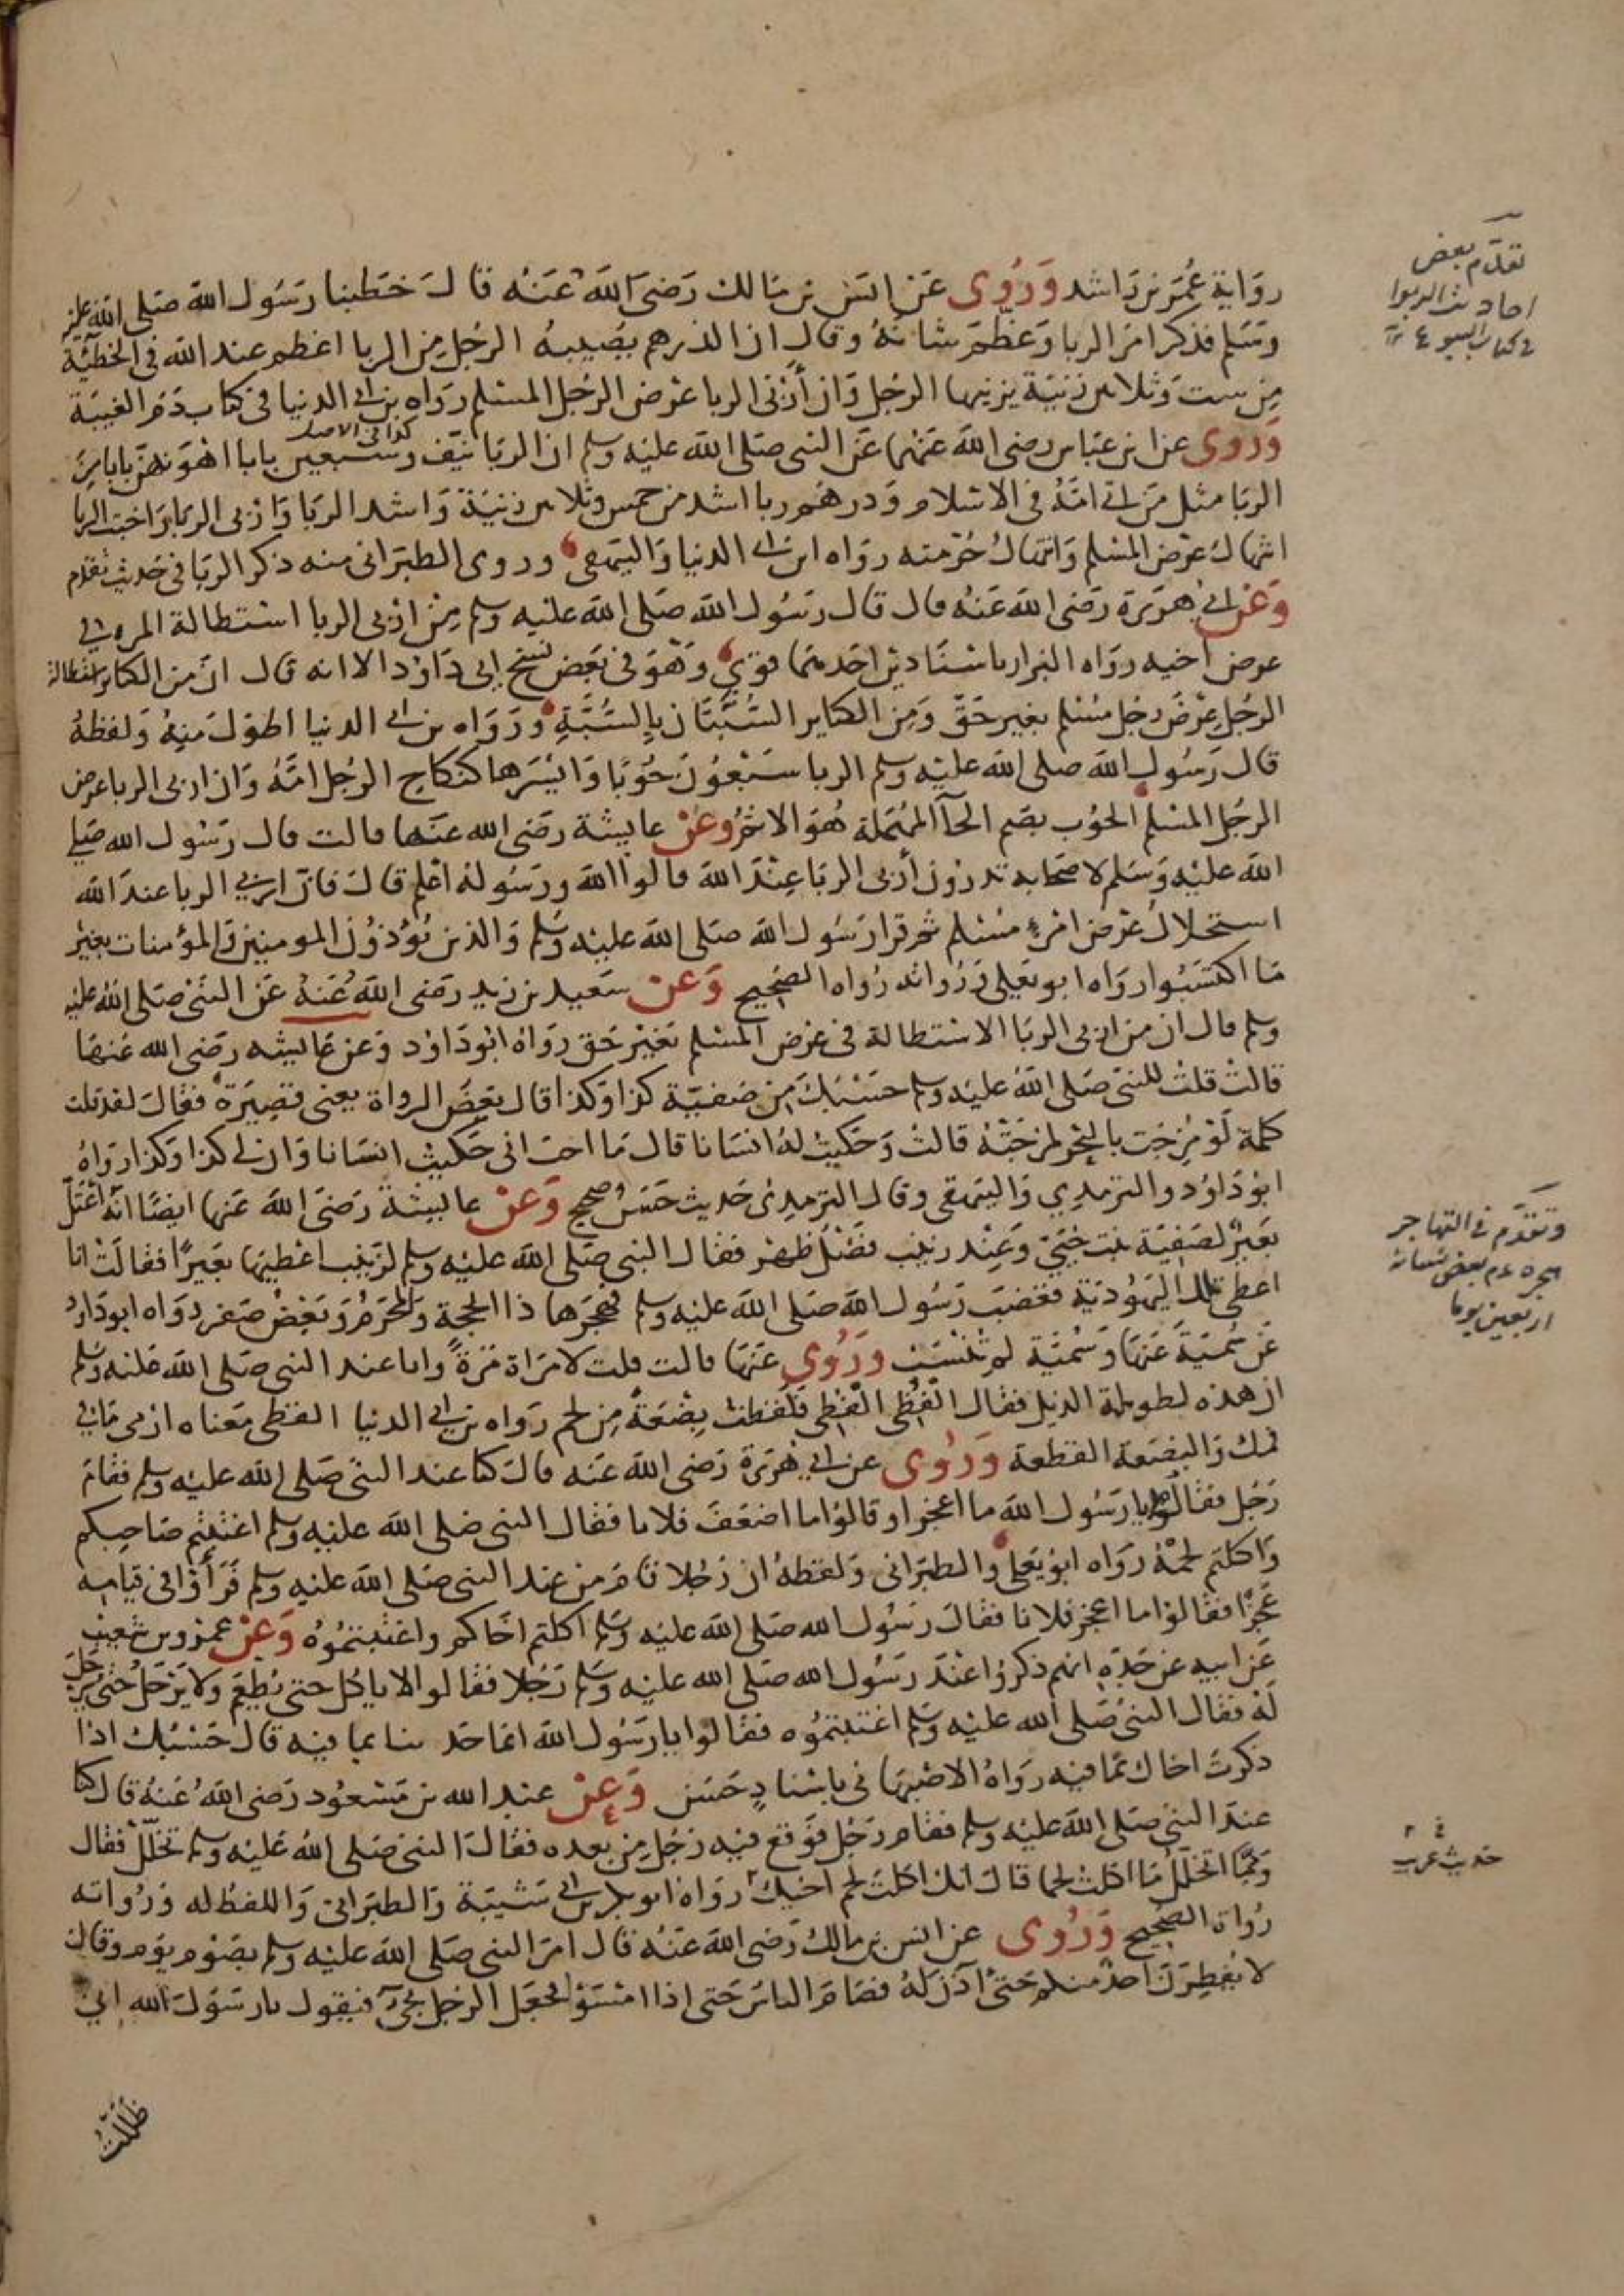 رواية عمر بن راشد وروى عن انس بن مالك رضى الله عنه قال خطبنا رسول الله صلى الله عليه
وسلم فذكر امر الربا وعظم شانه وقال ان الدرهم يصيبه الرجل من الربا اعظم عند الله فى الخطيئة
من ست وثلاثين زنية يزنيها الرجل وان أربى الربا عرض الرجل المسلم رواه بن ابى الدنيا فى كتاب ذم الغيبة
كذا فى الاصل
وروى عن ابن عباس رضى الله عنهما عن النبى صلى الله عليه وسلم ان الربا نيف وسبعين بابا اهونهن بابا من
الربا مثل من اتى امه فى الاسلام ودرهم ربا اشد من خمس وثلاثين زنية واشد الربا واربى الربا واخبث الربا
انتهاك عرض المسلم وانتهاك حرمته رواه ابن ابى الدنيا والبيهقى وروى الطبرانى منه ذكر الربا فى حديث تقدم
وعن ابى هريرة رضى الله عنه قال قال رسول الله صلى الله عليه وسلم من اربى الربا استطالة المرء فى
عرض اخيه رواه البزار باسنادين احدهما قوي وهو فى بعض نسخ ابى داود الا انه قال ان من الكبائر استطالة
الرجل عرض رجل مسلم بغير حق ومن الكبائر السبتان بالسبة ورواه بن ابى الدنيا اطول منه ولفظه
قال رسول الله صلى الله عليه وسلم الربا سبعون حوبا وايسرها كنكاح الرجل امه وان اربى الربا عرض
الرجل المسلم الحوب بضم الحآ المهملة هو الاثم وعن عايشة رضى الله عنها قالت قال رسول الله صلى
الله عليه وسلم لاصحابه تدرون أربى الربا عند الله قالوا الله ورسوله اعلم قال فان اربى الربا عند الله
استحلال عرض امرئ مسلم ثم قرا رسول الله صلى الله عليه وسلم والذين يؤذون المومنين والمؤمنات بغير
ما اكتسبوا رواه ابو يعلى ورواته رواه الصحيح وعن سعيد بن زيد رضى الله عنه عن النبى صلى الله عليه
وسلم قال ان من اربى الربا الاستطالة فى عرض المسلم بغير حق رواه ابو داود وعن عايشه رضى الله عنها
قالت قلت للنبى صلى الله عليه وسلم حسبك من صفية كذا وكذا قال بعض الرواة يعنى قصيرة فقال لقد قلت
كلمة لو مزجت بالبحر لمزجته قالت وحكيت له انسانا قال ما احب انى حكيت انسانا وان لى كذا وكذا رواه
ابو داود والترمذي والبيهقى وقال الترمذى حديث حسن صحيح وعن عايشة رضى الله عنها ايضا انه اعتل
بعير لصفية بنت حيي وعند زينب فضل ظهر فقال النبى صلى الله عليه وسلم لزينب اعطيها بعيرا فقالت انا
اعطى تلك اليهودية فغضب رسول الله صلى الله عليه وسلم فهجرها ذا الحجة والمحرم وبعض صفر رواه ابو داود
عن سمية عنها وسمية لم تنسب وروى عنها قالت قلت لامراة مرة وانا عند النبى صلى الله عليه وسلم
ان هذه لطويلة الذيل فقال الفظى الفظى فلفظت بضعة من لحم رواه بن ابى الدنيا الفظى معناه ارمى ما فى
فمك والبضعة القطعة وروى عن ابى هريرة رضى الله عنه قال كنا عند النبى صلى الله عليه وسلم فقام
رجل فقالوا يا رسول الله ما اعجز او قالوا ما اضعف فلانا فقال النبى صلى الله عليه وسلم اغتبتم صاحبكم
واكلتم لحمه رواه ابو يعلى والطبرانى ولفظه ان رجلا قام من عند النبى صلى الله عليه وسلم فرأوا فى قيامه
عجزا فقالوا ما اعجز فلانا فقال رسول الله صلى الله عليه وسلم اكلتم اخاكم واغتبتموه وعن عمرو بن شعيب
عن ابيه عن جده انهم ذكروا عند رسول الله صلى الله عليه وسلم رجلا فقالوا لا ياكل حتى يطعم ولا يرحل حتى يرحل
له فقال النبى صلى الله عليه وسلم اغتبتموه فقالوا يا رسول الله انما حدثنا بما فيه قال حسبك اذا
ذكرت اخاك بما فيه رواه الاصبهانى باسناد حسن وعن عبد الله بن مسعود رضى الله عنه قال كنا
عند النبى صلى الله عليه وسلم فقام رجل فوقع فيه رجل من بعده فقال النبى صلى الله عليه وسلم تخلل فقال
ومما اتخلل ما اكلت لحما قال انك اكلت لحم اخيك رواه ابو بكر بن ابى شيبة والطبرانى واللفظ له ورواته
رواة الصحيح وروى عن انس بن مالك رضى الله عنه قال امر النبى صلى الله عليه وسلم بصوم يوم وقال
لا يفطرن احد منكم حتى آذن له فصام الناس حتى اذا امسوا فجعل الرجل يجئ فيقول يا رسول الله انى
ظللت
تقدم بعض
احاديث الربوا
فى كتاب البيوع
وتقدم فى التهاجر
هجره عم بعض نسائه
اربعين يوما
حديث غريب